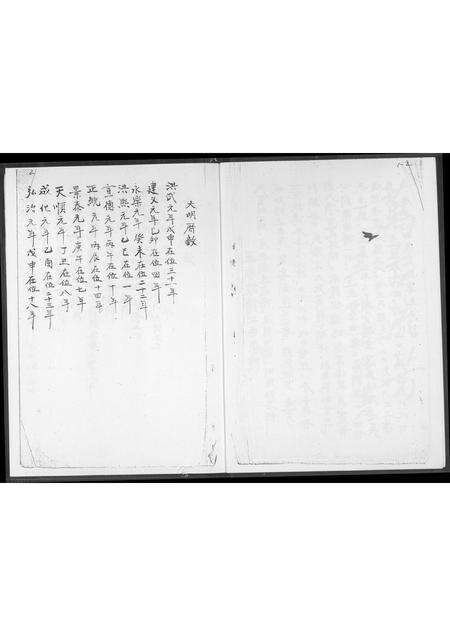 大明曆數
洪武元年戊申在位三十一年
建文元年己卯在位四年
永樂元年癸未在位二十二年
洪熙元年乙巳在位一年
宣德元年丙午在位十年
正統元年丙辰在位十四年
景泰元年庚午在位七年
天順元年丁丑在位八年
成化元年乙酉在位二十三年
弘治元年戊申在位十八年